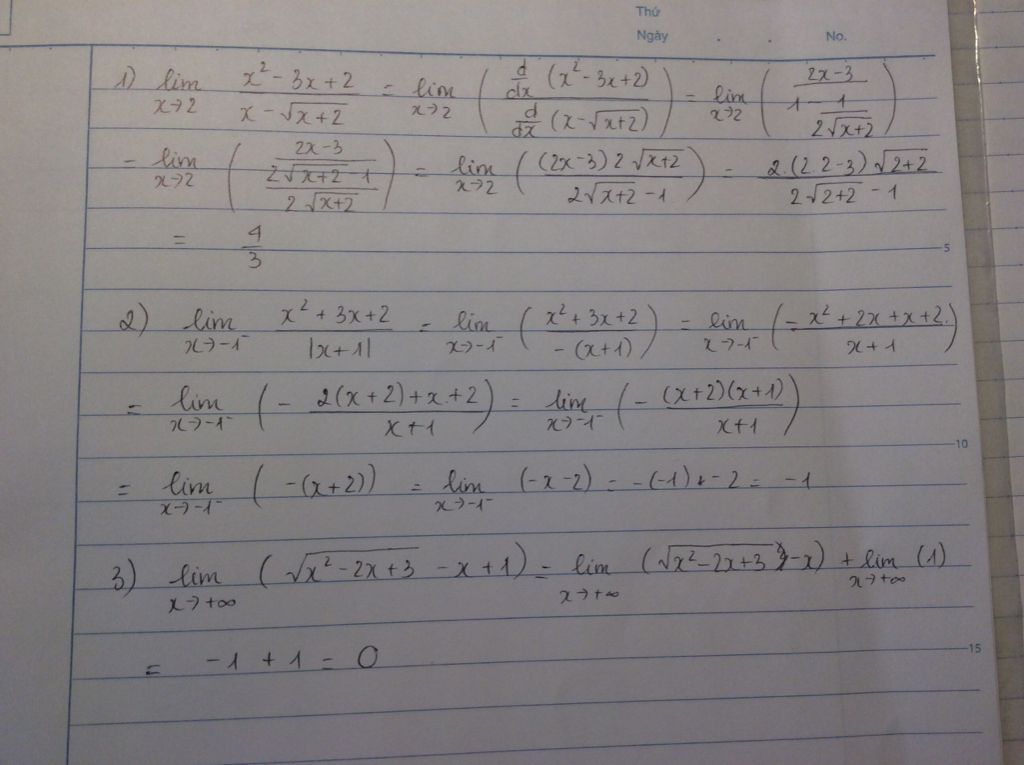 Thứ
Ngày . . No.
1) lim x→2 (x² - 3x + 2)/(x - √(x+2)) = lim x→2 ( (d/dx (x² - 3x + 2))/(d/dx (x - √(x+2))) ) = lim x→2 ( (2x-3)/(1 - 1/(2√(x+2))) )
= lim x→2 ( (2x-3)/((2√(x+2) - 1)/(2√(x+2))) ) = lim x→2 ( ((2x-3) 2 √(x+2))/(2√(x+2) - 1) ) = (2.(2.2-3) √(2+2))/(2√(2+2) - 1)
= 4/3
5
2) lim x→-1⁻ (x² + 3x + 2)/|x+1| = lim x→-1⁻ ( (x² + 3x + 2)/(-(x+1)) ) = lim x→-1⁻ ( - (x² + 2x + x + 2)/(x+1) )
= lim x→-1⁻ ( - (2(x+2) + x + 2)/(x+1) ) = lim x→-1⁻ ( - ((x+2)(x+1))/(x+1) )
10
= lim x→-1⁻ ( -(x+2)) = lim x→-1⁻ (-x-2) = -(-1) + -2 = -1
3) lim x→+∞ ( √(x² - 2x + 3) - x + 1) = lim x→+∞ (√(x² - 2x + 3) - x) + lim x→+∞ (1)
= -1 + 1 = 0
15